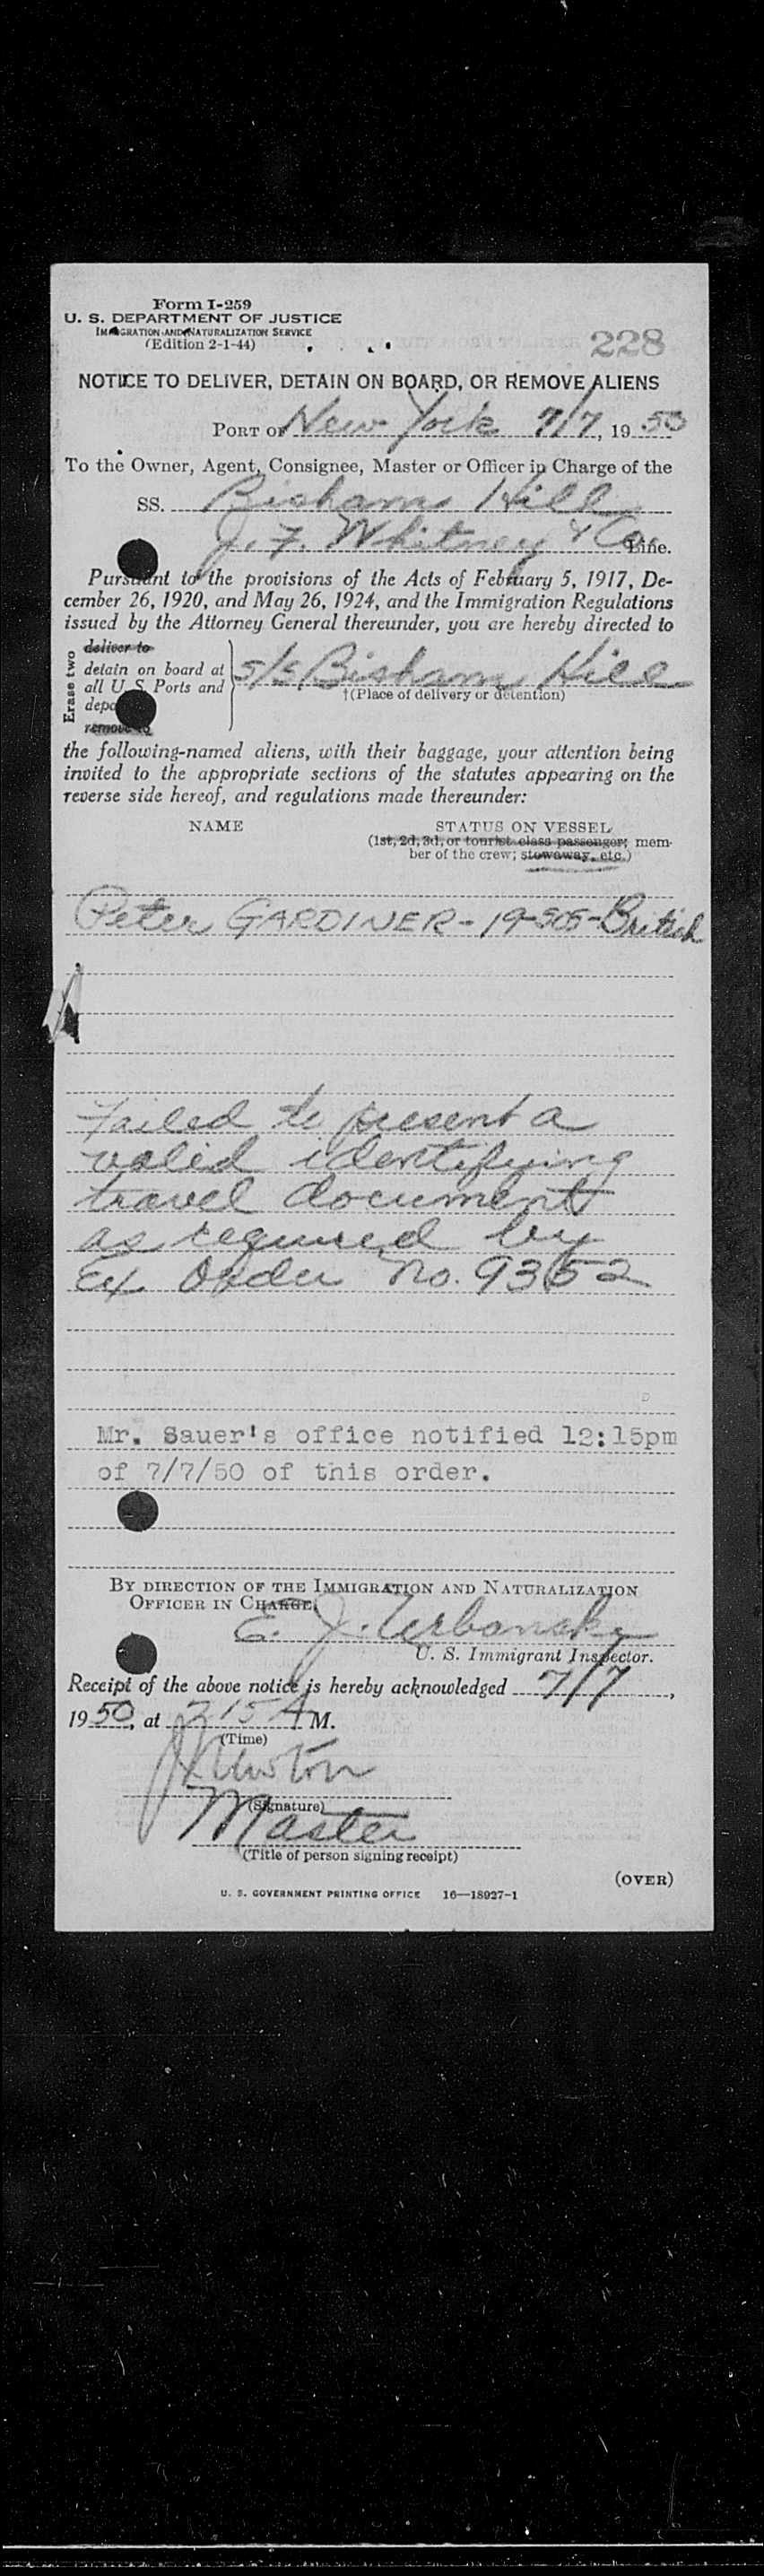 Form I-259
U. S. DEPARTMENT OF JUSTICE
IMMIGRATION AND NATURALIZATION SERVICE
(Edition 2-1-44)
228
NOTICE TO DELIVER, DETAIN ON BOARD, OR REMOVE ALIENS
PORT OF New York 7/7, 19 50
To the Owner, Agent, Consignee, Master or Officer in Charge of the
SS. Bisham Hill
J. F. Whitney & Co. Line.
Pursuant to the provisions of the Acts of February 5, 1917, De-
cember 26, 1920, and May 26, 1924, and the Immigration Regulations
issued by the Attorney General thereunder, you are hereby directed to
Erase two
deliver to
detain on board at
all U. S. Ports and
S/S Bisham Hill
†(Place of delivery or detention)
remove to
the following-named aliens, with their baggage, your attention being
invited to the appropriate sections of the statutes appearing on the
reverse side hereof, and regulations made thereunder:
NAME STATUS ON VESSEL
(1st, 2d, 3d, or tourist class passenger; mem-
ber of the crew; stowaway, etc.)
Peter GARDINER - 19- - British
Failed to present a
valid identifying
travel document
as required by
Ex Order No. 9352
Mr. Sauer's office notified 12:15pm
of 7/7/50 of this order.
BY DIRECTION OF THE IMMIGRATION AND NATURALIZATION
OFFICER IN CHARGE,
E. J. Urbansky
U. S. Immigrant Inspector.
Receipt of the above notice is hereby acknowledged 7/7,
19 50, at 215 A M.
(Time)
(Signature)
Master
(Title of person signing receipt)
(OVER)
U. S. GOVERNMENT PRINTING OFFICE 16—18927-1